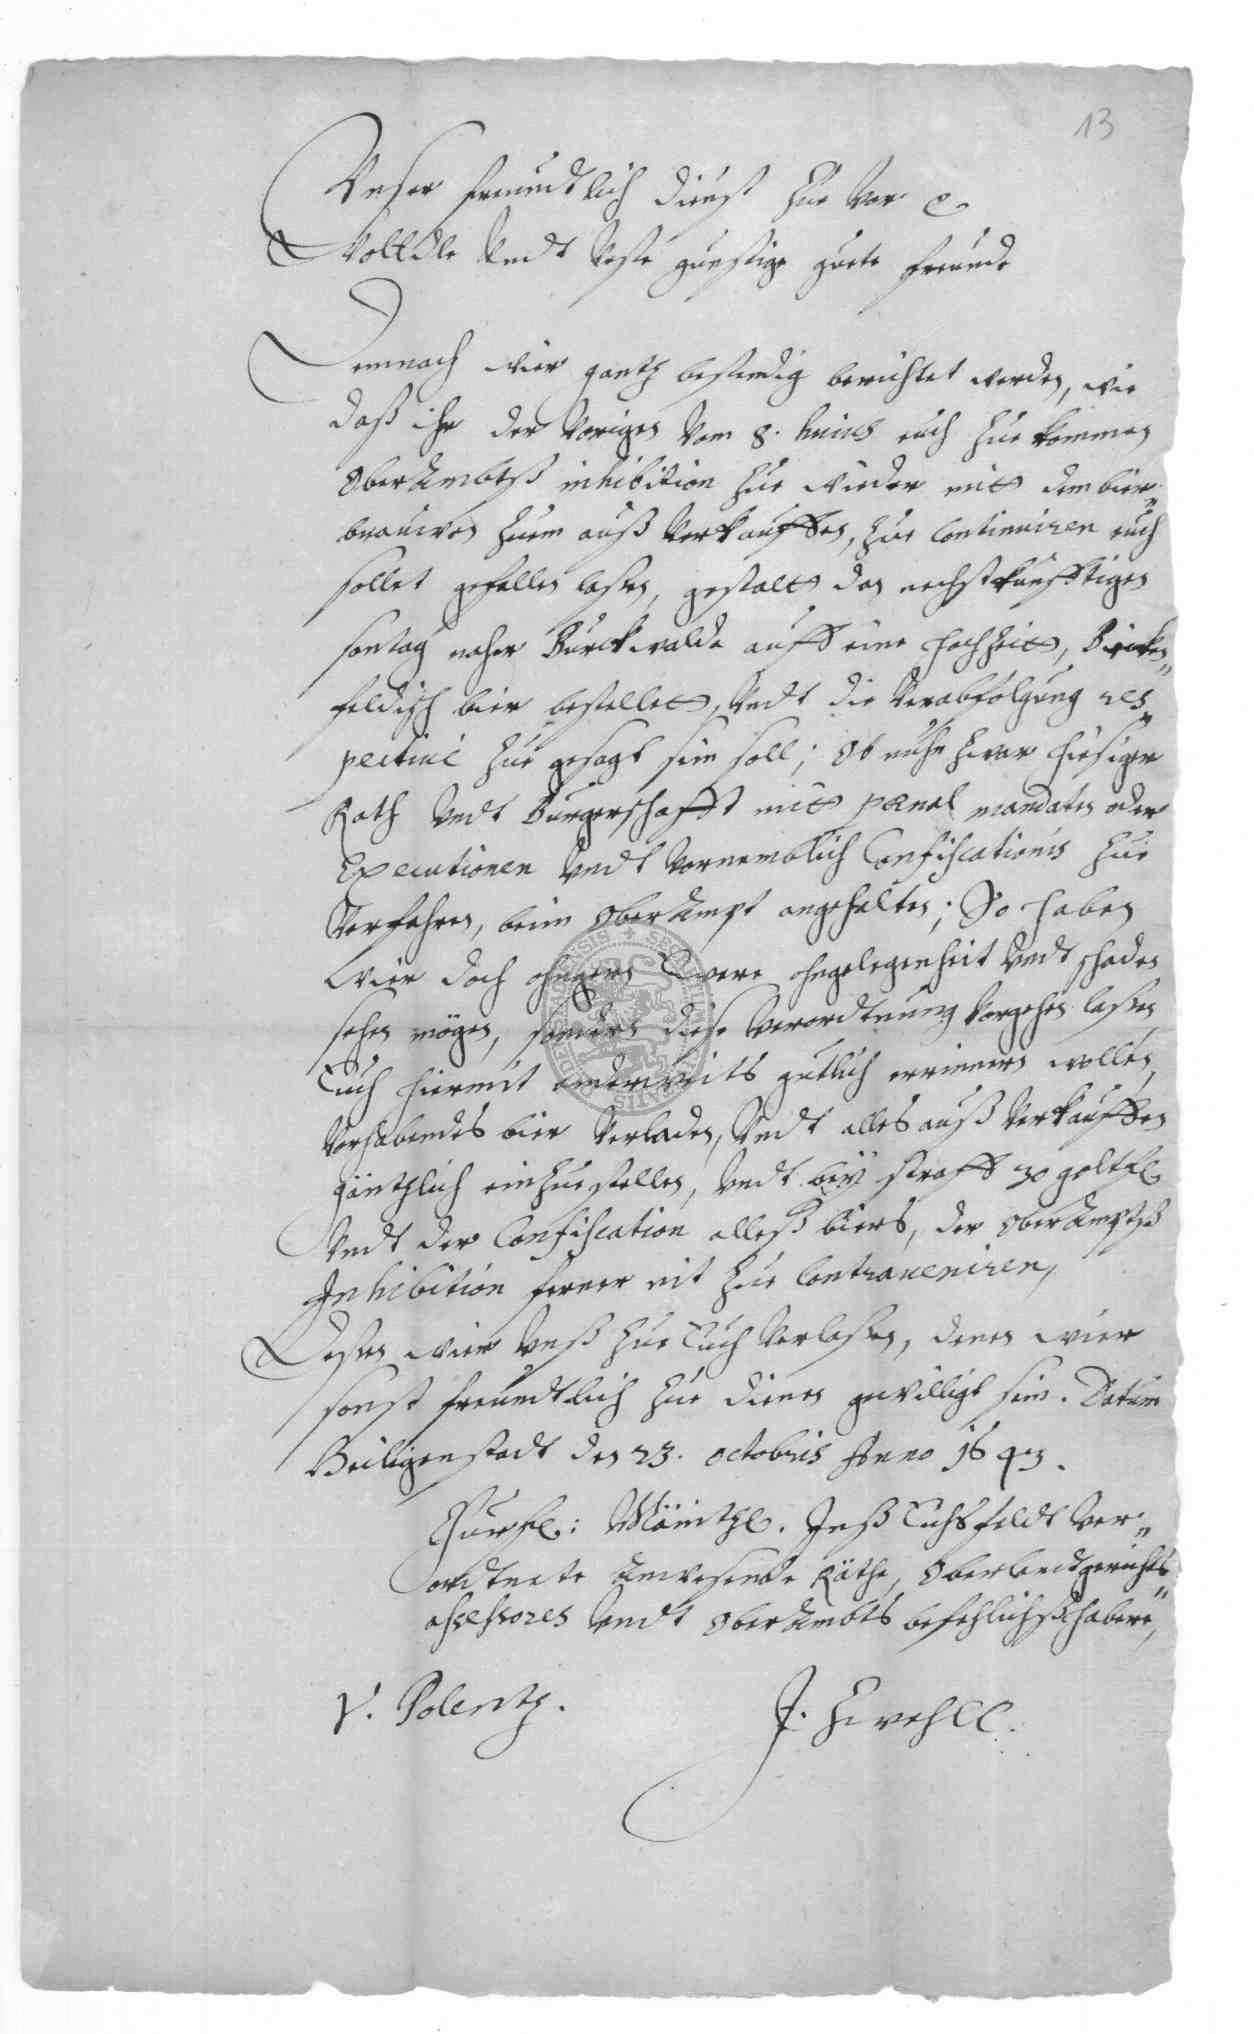 13
Vnser freundtlich dienst zue vor ꝛc
WollEdle Vndt Veste gunstige guete freunde
Demnach wier gantz bestendig berichtet werden, wie
daß ihr der Vorigen Vom 8. huius euch zue kommen
OberAmbtß inhibition zue wieder mit dem bier„
brauwen zuem auß Verkauffen, zue Continuiren euch
sollet gefallen laßen, gestalt den nechstkunfftigen
sontag naher Burckwalde auff eine Hochzeit, Bircken„
feldisch bier bestellet, Vndt die Verabfolgung res„
pectiué zue gesagt sein soll; Ob nuhn zwar hiesiger
Rath Vndt Burgerschafft mit poenal mandaten oder
Executionen Vndt Vornemblich Confiscationis zue
Verfahren, beim OberAmpt angehalten; So haben
wier doch ohngern Ewere ohngelegenheit Vndt schaden
sehen mögen, sondern diese Verordtnung Vorgehen laßen,
Euch hiermit anderweits gutlich errinnern wollen,
Vorhabendes bier Verladen, Vndt alles auß Verkauffen
gäntzlich einzuestellen, Vndt beÿ straff 30 goltfl
Vndt der Confiscation alleß biers, der OberAmptß
Inhibition ferner nit zue Contraueniren,
Deßen wier Vnß zue Euch Verlaßen, denen wier
sonst freundtlich zue dienen gewilligt sein. Datum
Heiligenstadt den 23. octobris Anno 1643.
Churfl: Mäintzl. Inß Eichsfeldt Ver„
ordtnete Anwesende Räthe, Oberlandtgerichts„
assessores Vndt OberAmbts befehlichßhabere,
V. Polentz.
J. Zwehll.